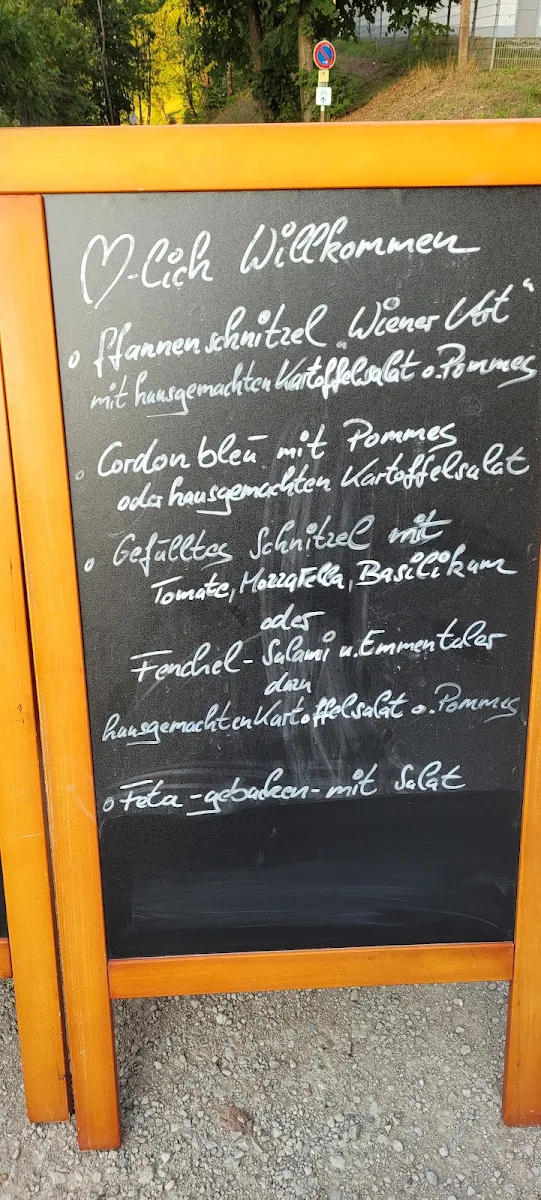 ♡-lich Willkommen
o Pfannenschnitzel „Wiener Art“
mit hausgemachten Kartoffelsalat o. Pommes
o Cordon bleu mit Pommes
oder hausgemachten Kartoffelsalat
o Gefülltes Schnitzel mit
Tomate, Mozzarella, Basilikum
oder
Fenchel-Salami u. Emmentaler
dazu
hausgemachten Kartoffelsalat o. Pommes
o Feta -gebacken- mit Salat